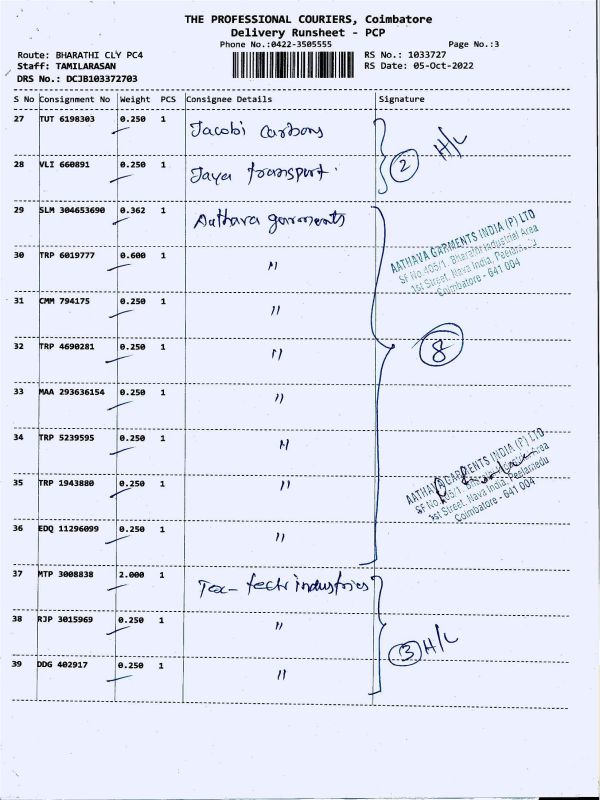 THE PROFESSIONAL COURIERS, Coimbatore
Delivery Runsheet - PCP
Phone No.:0422-3505555 Page No.:3
Route: BHARATHI CLY PC4 RS No.: 1033727
Staff: TAMILARASAN RS Date: 05-Oct-2022
DRS No.: DCJB103372703
S No Consignment No Weight PCS Consignee Details Signature
27 TUT 6198303 0.250 1 Jacobi Carbons
2 H/L
28 VLI 660891 0.250 1 Jaya transport
29 SLM 304653690 0.362 1 Aathava garments
AATHAVA GARMENTS INDIA (P) LTD
SF No.405/1, Bharathi Industrial Area
1st Street, Nava India, Peelamedu
Coimbatore - 641 004
30 TRP 6019777 0.600 1 "
31 CMM 794175 0.250 1 "
32 TRP 4690281 0.250 1 "
8
33 MAA 293636154 0.250 1 "
34 TRP 5239595 0.250 1 "
AATHAVA GARMENTS INDIA (P) LTD
SF No.405/1, Area
1st Street, Nava India, Peelamedu
Coimbatore - 641 004
35 TRP 1943880 0.250 1 "
36 EDQ 11296099 0.250 1 "
37 MTP 3008838 2.000 1 Tex-tech industries
38 RJP 3015969 0.250 1 "
3 H/L
39 DDG 402917 0.250 1 "